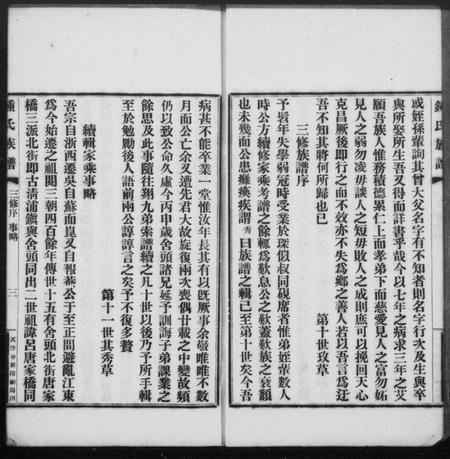 鍾氏族譜
或姪孫輩詢其曾大父名字有不知者則名字行次及生與卒
與所娶所生吾又得而詳書乎哉今以七年之病求三年之艾
願吾族人惟務積德累仁上而孝弟下而慈愛見人之富勿妬
見人之弱勿凌毋談人之短毋敗人之成則庶可以挽回天心
克昌厥後即行之而不效亦不失爲鄉之善人若以吾言爲迂
吾不知其將何所歸也已
第十世玫草
三修族譜序
予髫年失學弱冠時受業於琛似叔同硯席者惟弟姪輩數人
時公方續修家乘考譜之餘輒爲歎息公之歎蓋歎族之衰頹
也未幾而公患癱瘓疾謂秀曰族譜之輯已至第十世矣今吾
病甚不能卒業一堂惟汝年長其有以旣厥事余敬唯唯不數
月而公亡余又遭先君大故旋復兩次喪偶廿載之中變故頻
仍以致公命久虛今丙申歲舍頭諸兄延予訓誨子弟課業之
餘思及此事隨往翔九弟索譜續之凡十世以後乃予所手輯
至於勉勵後人語前兩公諄諄言之矣予不復多贅
第十一世其秀草
續輯家乘事略
吾宗自浙西遷吳自蘇而崑又自報慈公于至正間避亂江東
爲今始遷之祖閱三朝四百餘年傳世十五有舍頭北街唐家
橋三派北街即古淸浦鎭與舍頭同出二世祖諱呂唐家橋同
鍾氏族譜
三修序 事略
三